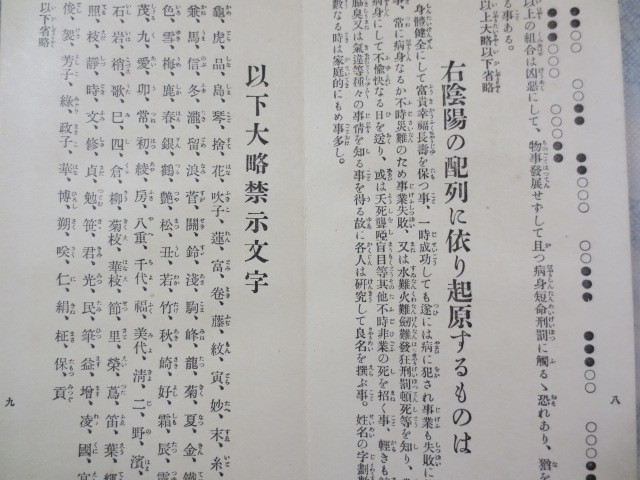 ●●●○○ ○○●● ●○○○ ○○●●● ●●●○○ ○○○●
○○○● ○○○○●
以上の組合は凶惡にして、物事發展せずして且つ病身短命刑罰に觸るゝ恐れあり、猶を
る事ある。
以上大略以下省略
右陰陽の配列に依り起原するものは
身體健全にして富貴幸福長壽を保つ事、一時成功しても遂には病に犯され事業も失敗に
事、常に病身なるか不時災難のため事業失敗、又は水難火難劍難發狂刑罰頓死等を知り、
病身にして不愉快なる日を送り、或は夭死聾啞盲目等其他不時非業の死を招く事、輕きも
腦臭又は氣違等種々の事情を知る事を得る故に各人は研究して良名を撰ぶ事。姓名の字劃
數なる時は家庭的にもめ事多し。
八
以下大略禁示文字
龜、虎、品、島、琴、捨、花、吹子、蓮、富、卷、藤、紋、寅、妙、末、糸、
兼、馬、信、冬、瀧、留、浪、菅、關、鈴、淺、駒、峰、龍、菊、夏、金、鐵
色、雪、梅、鹿、春、銀、鶴、艷、松、丑、若、竹、秋、崎、好、霜、辰、雷
茂、九、愛、卯、常、初、綾、房、八重、千代、福、美代、淸、二、野、濱、
石、岩、梢、歌、巳、四、倉、柳、菊枝、華枝、節、里、榮、蔦、笛、葉、輝
照、枝、靜、時、文、修、貞、勉、笹、君、光、民、筆、益、增、凌、國、宮
俊、袈、芳子、綠、政子、華、博、朔、咲、仁、絹、柾、保、貢
以下省略
九